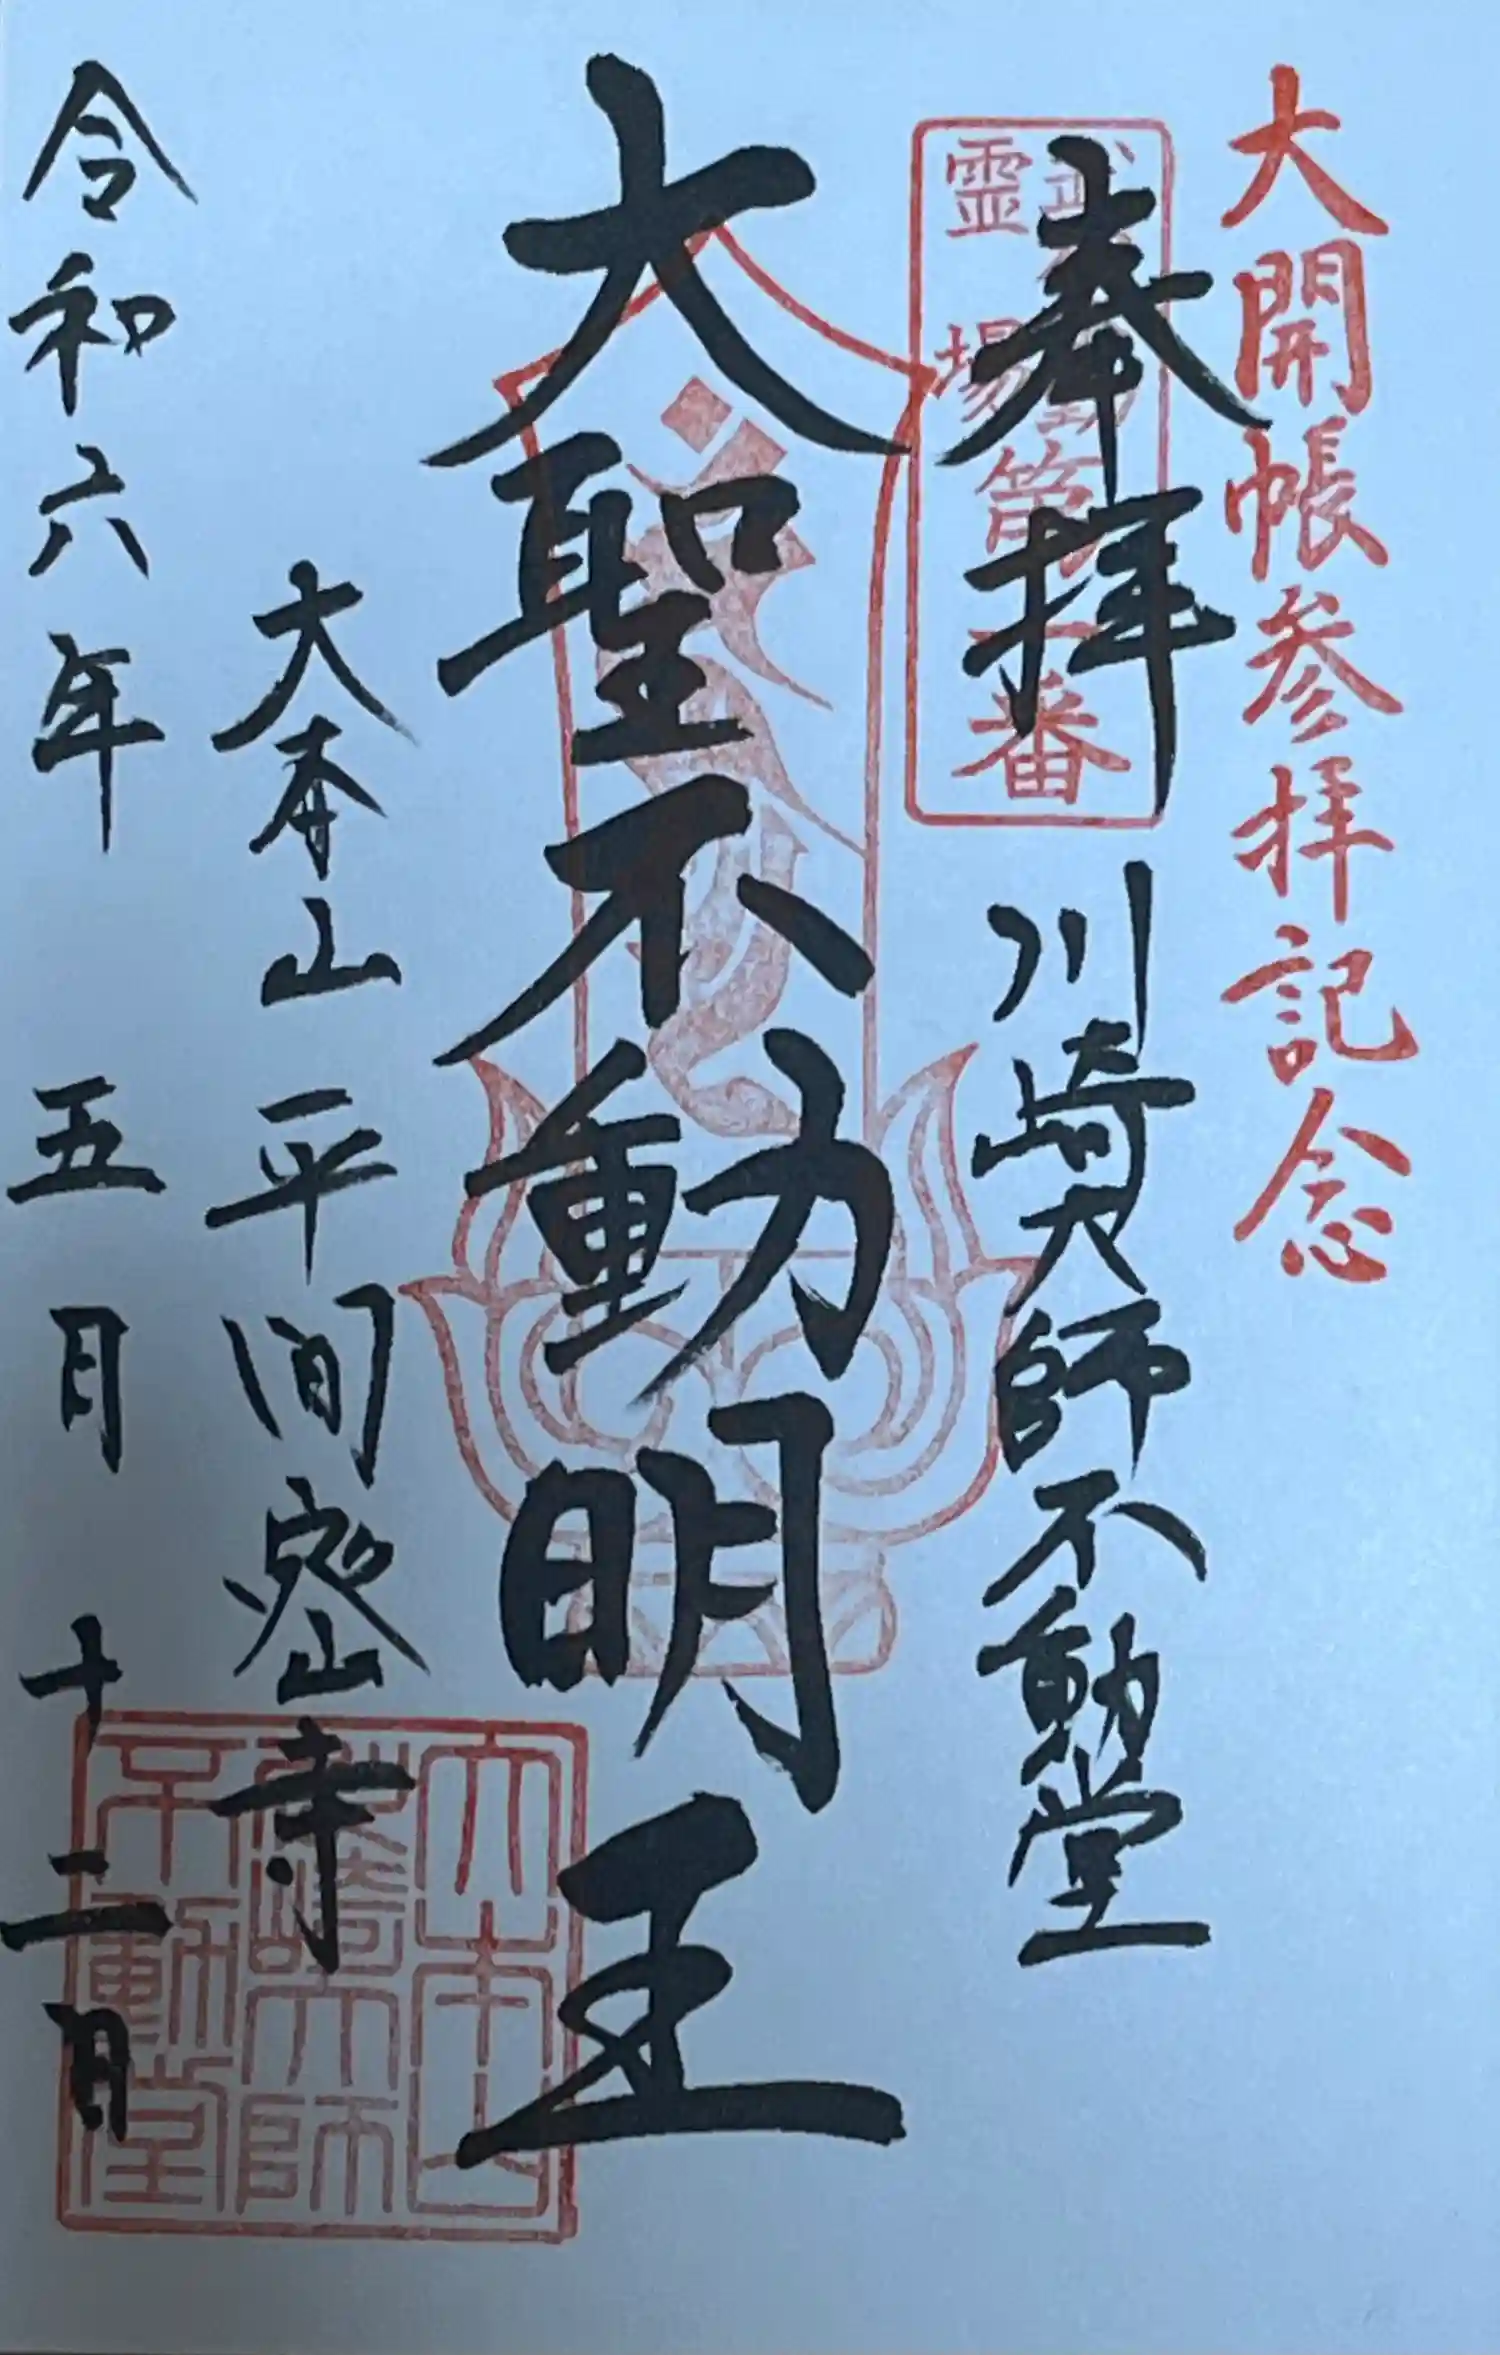 大開帳参拝記念
奉拝
川崎大師不動堂
霊場第一番
大聖不動明王
大本山 平間寺
令和六年 五月 十二日
大本山
川崎大師
不動堂